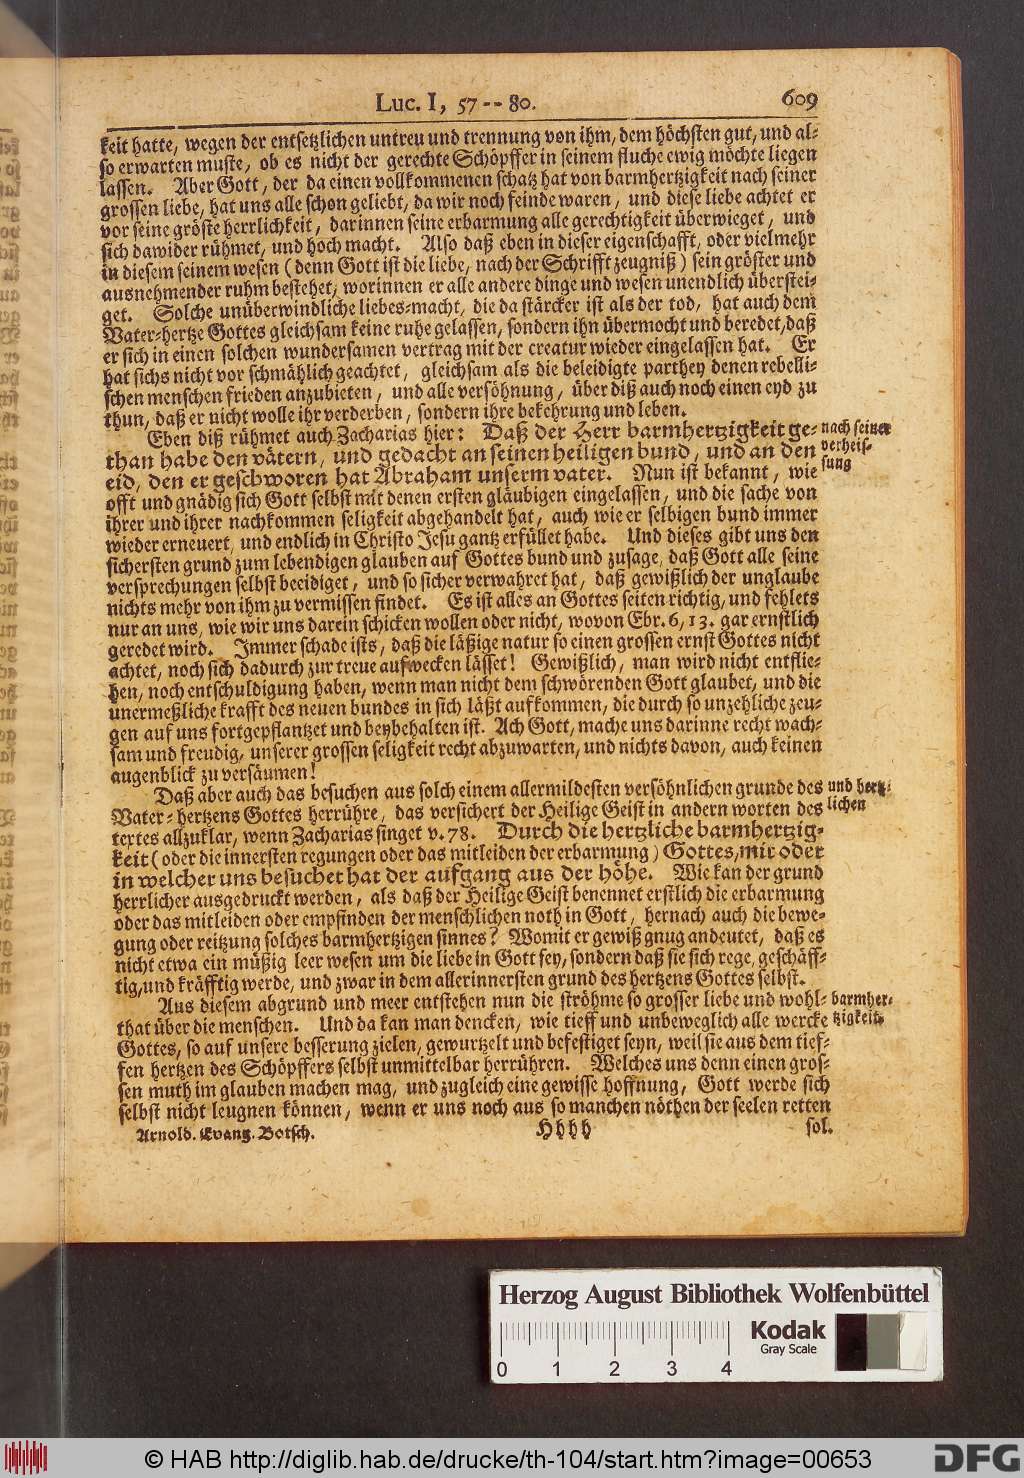 Luc. I, 57 -- 80. 609
keit hatte, wegen der entsetzlichen untreu und trennung von ihm, dem höchsten gut, und al-
so erwarten muste, ob es nicht der gerechte Schöpffer in seinem fluche ewig möchte liegen
lassen. Aber Gott, der da einen vollkommenen schatz hat von barmhertzigkeit nach seiner
grossen liebe, hat uns alle schon geliebt, da wir noch feinde waren, und diese liebe achtet er
vor seine gröste herrlichkeit, darinnen seine erbarmung alle gerechtigkeit überwieget, und
sich dawider rühmet, und hoch macht. Also daß eben in dieser eigenschafft, oder vielmehr
in diesem seinem wesen (denn Gott ist die liebe, nach der Schrifft zeugniß) sein gröster und
ausnehmender ruhm bestehet, worinnen er alle andere dinge und wesen unendlich überstei-
get. Solche unüberwindliche liebes-macht, die da stärcker ist als der tod, hat auch dem
Vater-hertze Gottes gleichsam keine ruhe gelassen, sondern ihn übermocht und beredet, daß
er sich in einen solchen wundersamen vertrag mit der creatur wieder eingelassen hat. Er
hat sichs nicht vor schmählich geachtet, gleichsam als die beleidigte parthey denen rebelli-
schen menschen frieden anzubieten, und alle versöhnung, über diß auch noch einen eyd zu
thun, daß er nicht wolle ihr verderben, sondern ihre bekehrung und leben.
Eben diß rühmet auch Zacharias hier: Daß der Herr barmhertzigkeit ge- nach seiner
than habe den vätern, und gedacht an seinen heiligen bund, und an den verheis-
eid, den er geschworen hat Abraham unserm vater. Nun ist bekannt, wie sung
offt und gnädig sich Gott selbst mit denen ersten gläubigen eingelassen, und die sache von
ihrer und ihrer nachkommen seligkeit abgehandelt hat, auch wie er selbigen bund immer
wieder erneuert, und endlich in Christo Jesu gantz erfüllet habe. Und dieses gibt uns den
sichersten grund zum lebendigen glauben auf Gottes bund und zusage, daß Gott alle seine
versprechungen selbst beeidiget, und so sicher verwahret hat, daß gewißlich der unglaube
nichts mehr von ihm zu vermissen findet. Es ist alles an Gottes seiten richtig, und fehlets
nur an uns, wie wir uns darein schicken wollen oder nicht, wovon Ebr. 6, 13. gar ernstlich
geredet wird. Immer schade ists, daß die läßige natur so einen grossen ernst Gottes nicht
achtet, noch sich dadurch zur treue aufwecken lässet! Gewißlich, man wird nicht entflie-
hen, noch entschuldigung haben, wenn man nicht dem schwörenden Gott glaubet, und die
unermeßliche krafft des neuen bundes in sich läßt aufkommen, die durch so unzehliche zeu-
gen auf uns fortgepflantzet und beybehalten ist. Ach Gott, mache uns darinne recht wach-
sam und freudig, unserer grossen seligkeit recht abzuwarten, und nichts davon, auch keinen
augenblick zu versäumen!
Daß aber auch das besuchen aus solch einem allermildesten versöhnlichen grunde des und hertz-
Vater-hertzens Gottes herrühre, das versichert der Heilige Geist in andern worten des lichen
textes allzuklar, wenn Zacharias singet v. 78. Durch die hertzliche barmhertzig-
keit (oder die innersten regungen oder das mitleiden der erbarmung) Gottes, mit oder
in welcher uns besuchet hat der aufgang aus der höhe. Wie kan der grund
herrlicher ausgedruckt werden, als daß der Heilige Geist benennet erstlich die erbarmung
oder das mitleiden oder empfinden der menschlichen noth in Gott, hernach auch die bewe-
gung oder reitzung solches barmhertzigen sinnes? Womit er gewiß gnug andeutet, daß es
nicht etwa ein müßig leer wesen um die liebe in Gott sey, sondern daß sie sich rege, geschäff-
tig, und kräfftig werde, und zwar in dem allerinnersten grund des hertzens Gottes selbst.
Aus diesem abgrund und meer entstehen nun die ströhme so grosser liebe und wohl- barmher-
that über die menschen. Und da kan man dencken, wie tieff und unbeweglich alle wercke tzigkeit,
Gottes, so auf unsere besserung zielen, gewurtzelt und befestiget seyn, weil sie aus dem tief-
fen hertzen des Schöpffers selbst unmittelbar herrühren. Welches uns denn einen gros-
sen muth im glauben machen mag, und zugleich eine gewisse hoffnung, Gott werde sich
selbst nicht leugnen können, wenn er uns noch aus so manchen nöthen der seelen retten
Arnold. Evang. Botsch. Hhhh sol.
Herzog August Bibliothek Wolfenbüttel
0 1 2 3 4
Kodak
Gray Scale
© HAB http://diglib.hab.de/drucke/th-104/start.htm?image=00653
DFG